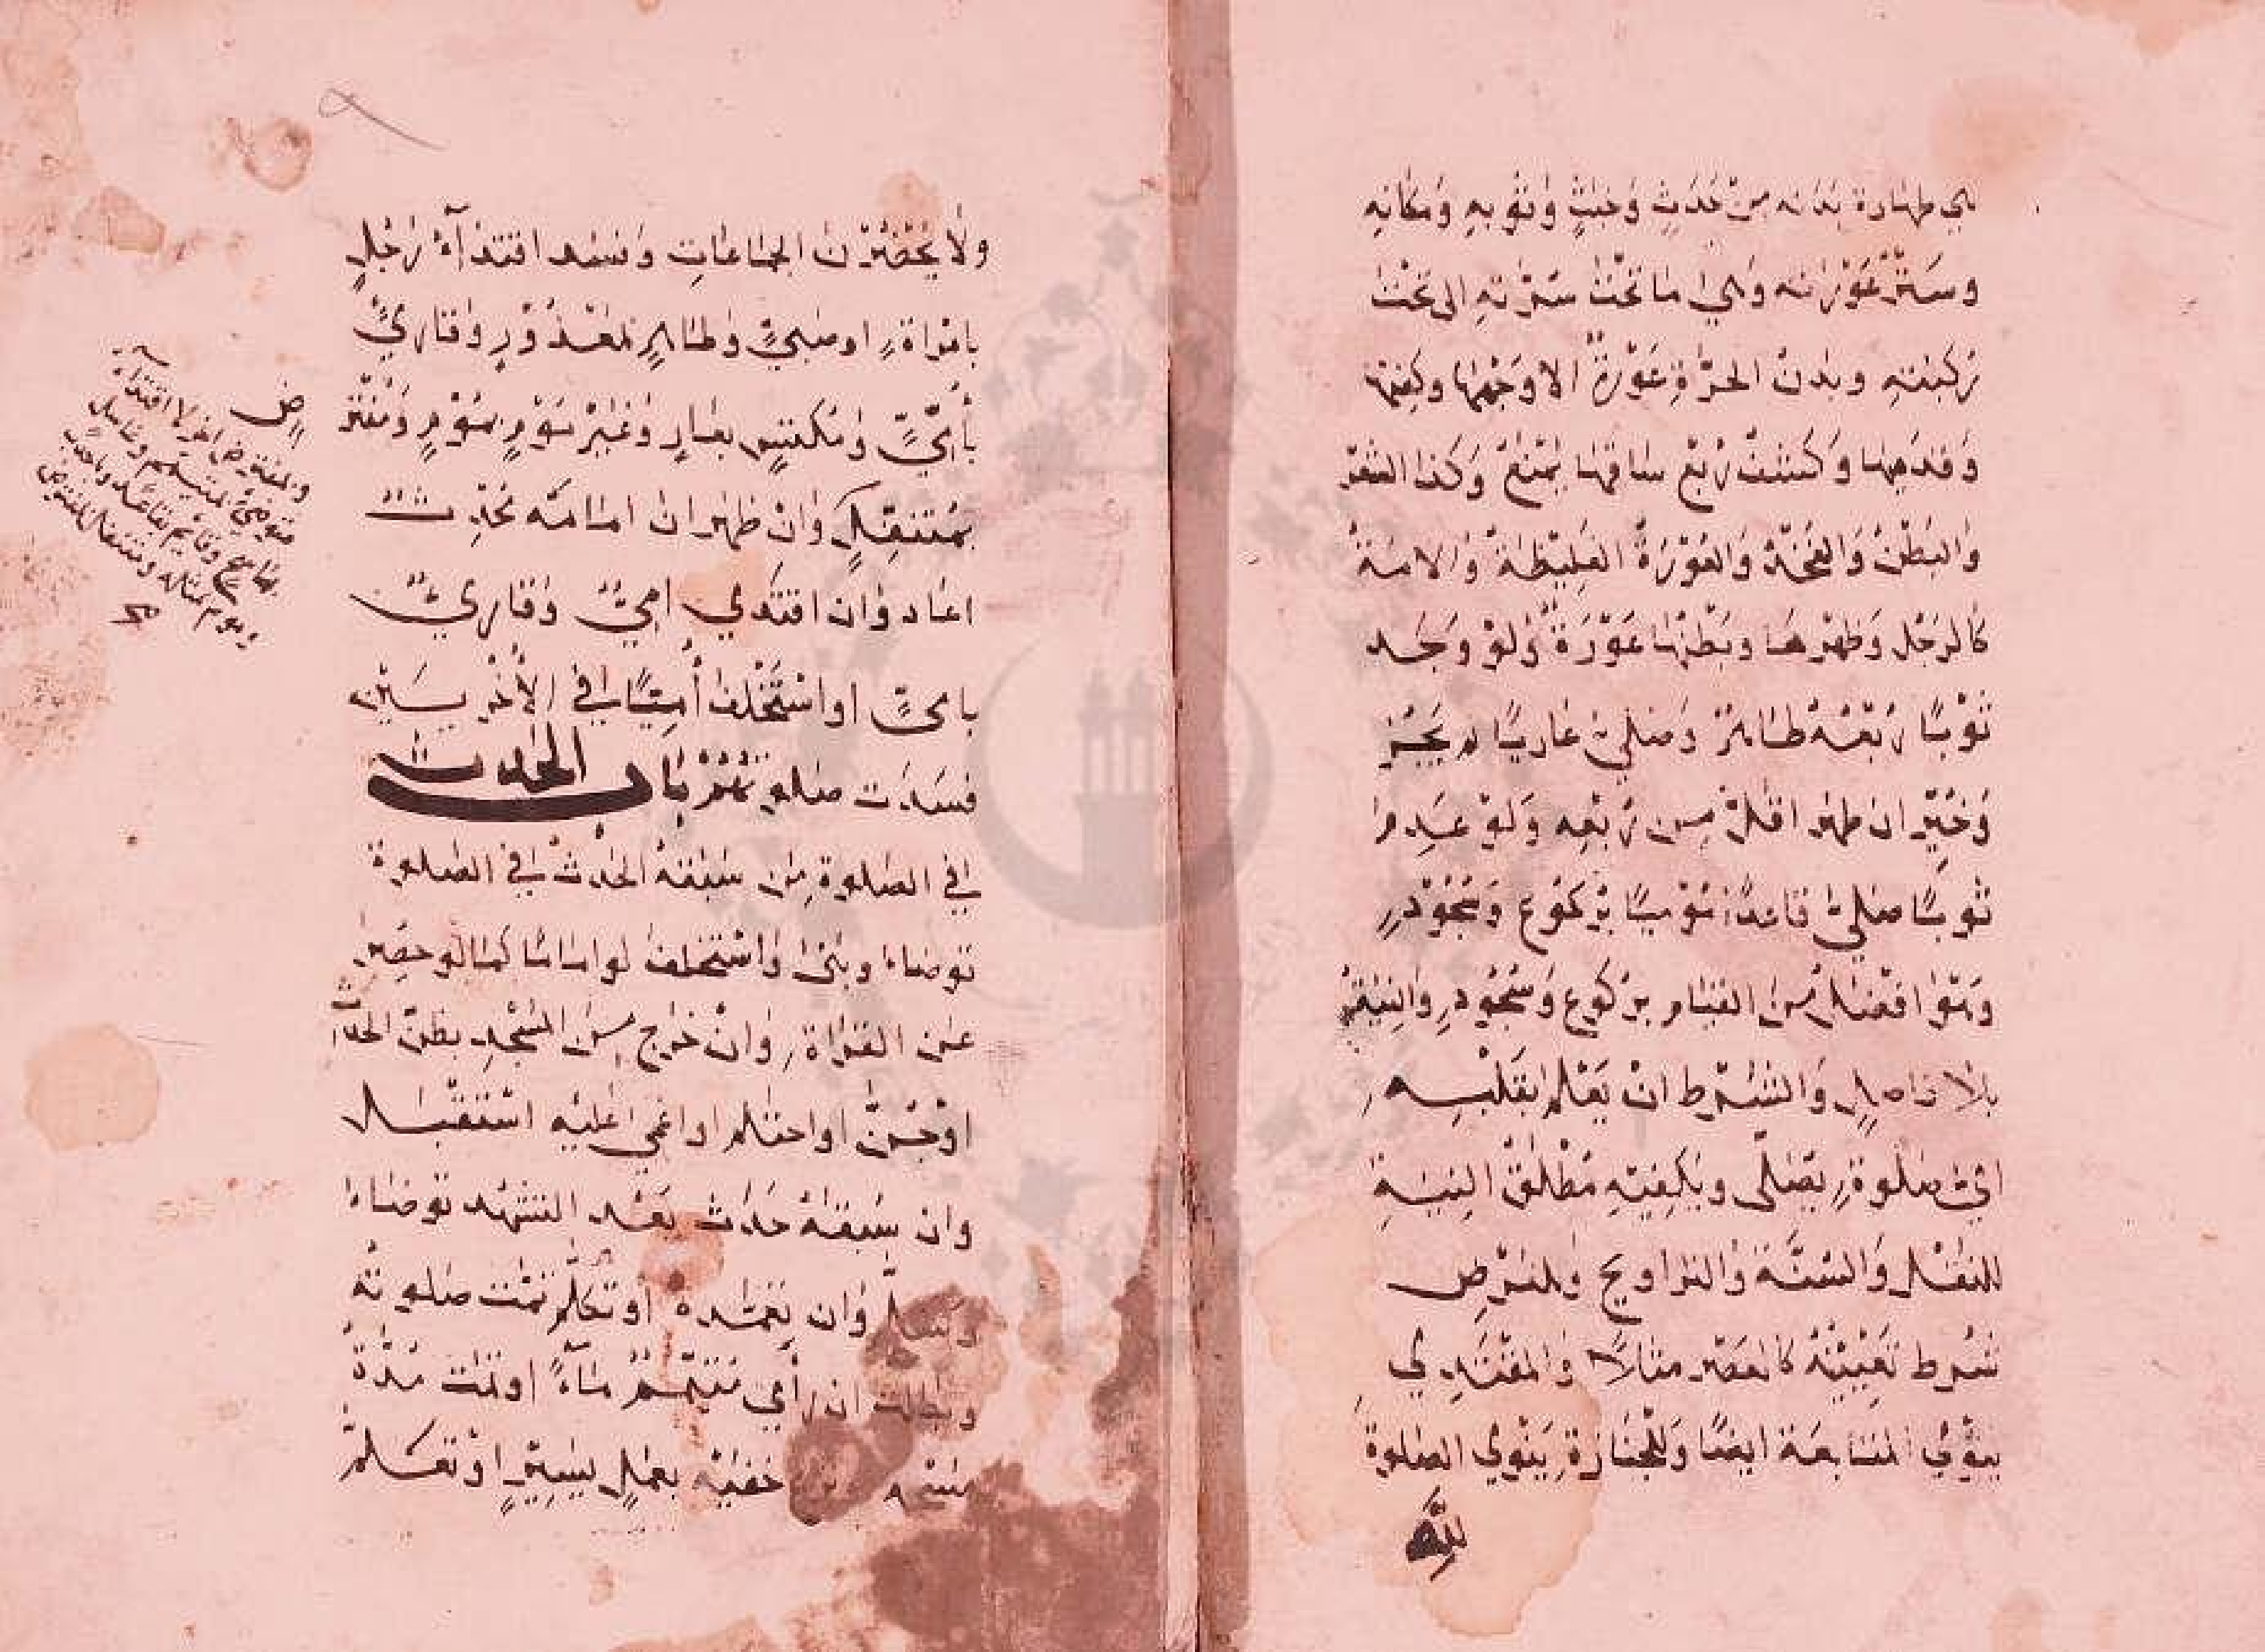 هي طهارة بدنه من حدث وخبث وثوبه ومكانه
وستر عورته وهي ما تحت سرته الى تحت
ركبته وبدن الحرة عورة الا وجهها وكفيها
وقدميها وكشف ربع ساقها يمنع وكذا الشعر
والبطن والفخذ والعورة الغليظة والامة
كالرجل وظهرها وبطنها عورة ولو وجد
ثوبا ربعه طاهر وصلى عاريا لم يجز
وخير ان طهر اقل من ربعه ولو عدم
ثوبا صلى قاعدا موميا بركوع وسجود
وهو افضل من القيام بركوع وسجود والنية
بلا فاصل والشرط ان يعلم بقلبه
اي صلوة يصلى ويكفيه مطلق النية
للنفل والسنة والتراويح وللفرض
شرط تعيينه كالعصر مثلا والمقتدي
ينوي المتابعة ايضا وللجنازة ينوي الصلوة
لله
ولا يحضرن الجماعات وفسد اقتداء رجل
بامراة او صبي وطاهر بمعذور وقاري
بأمي ومكتس بعار وغير موم بموم ومفتر
بمتنفل وان ظهر ان امامه محدث
اعاد وان اقتدى امي وقاري
بامي او استخلف أميا في الأخريين
فسدت صلوتهم باب الحدث
في الصلوة من سبقه الحدث في الصلوة
توضاء وبنى واستخلف لو اماما كما لو حصر
عن القراة وان خرج من المسجد بظن الحدث
او جن او احتلم او اغمي عليه استقبل
وان سبقه حدث بعد التشهد توضاء
وسلم وان تعمده او تكلم تمت صلوته
وبطلت ان رأى متيمم ماء او تمت مدة
مسحه خفيه بعمل يسير او تعلم
ض
والمفترض اخر لا اقتداء
متوضئ لمتيمم وغاسل
بماسح وقائم بقاعد وباحدب
وموم بمثله ومتنفل لمفترض
صح